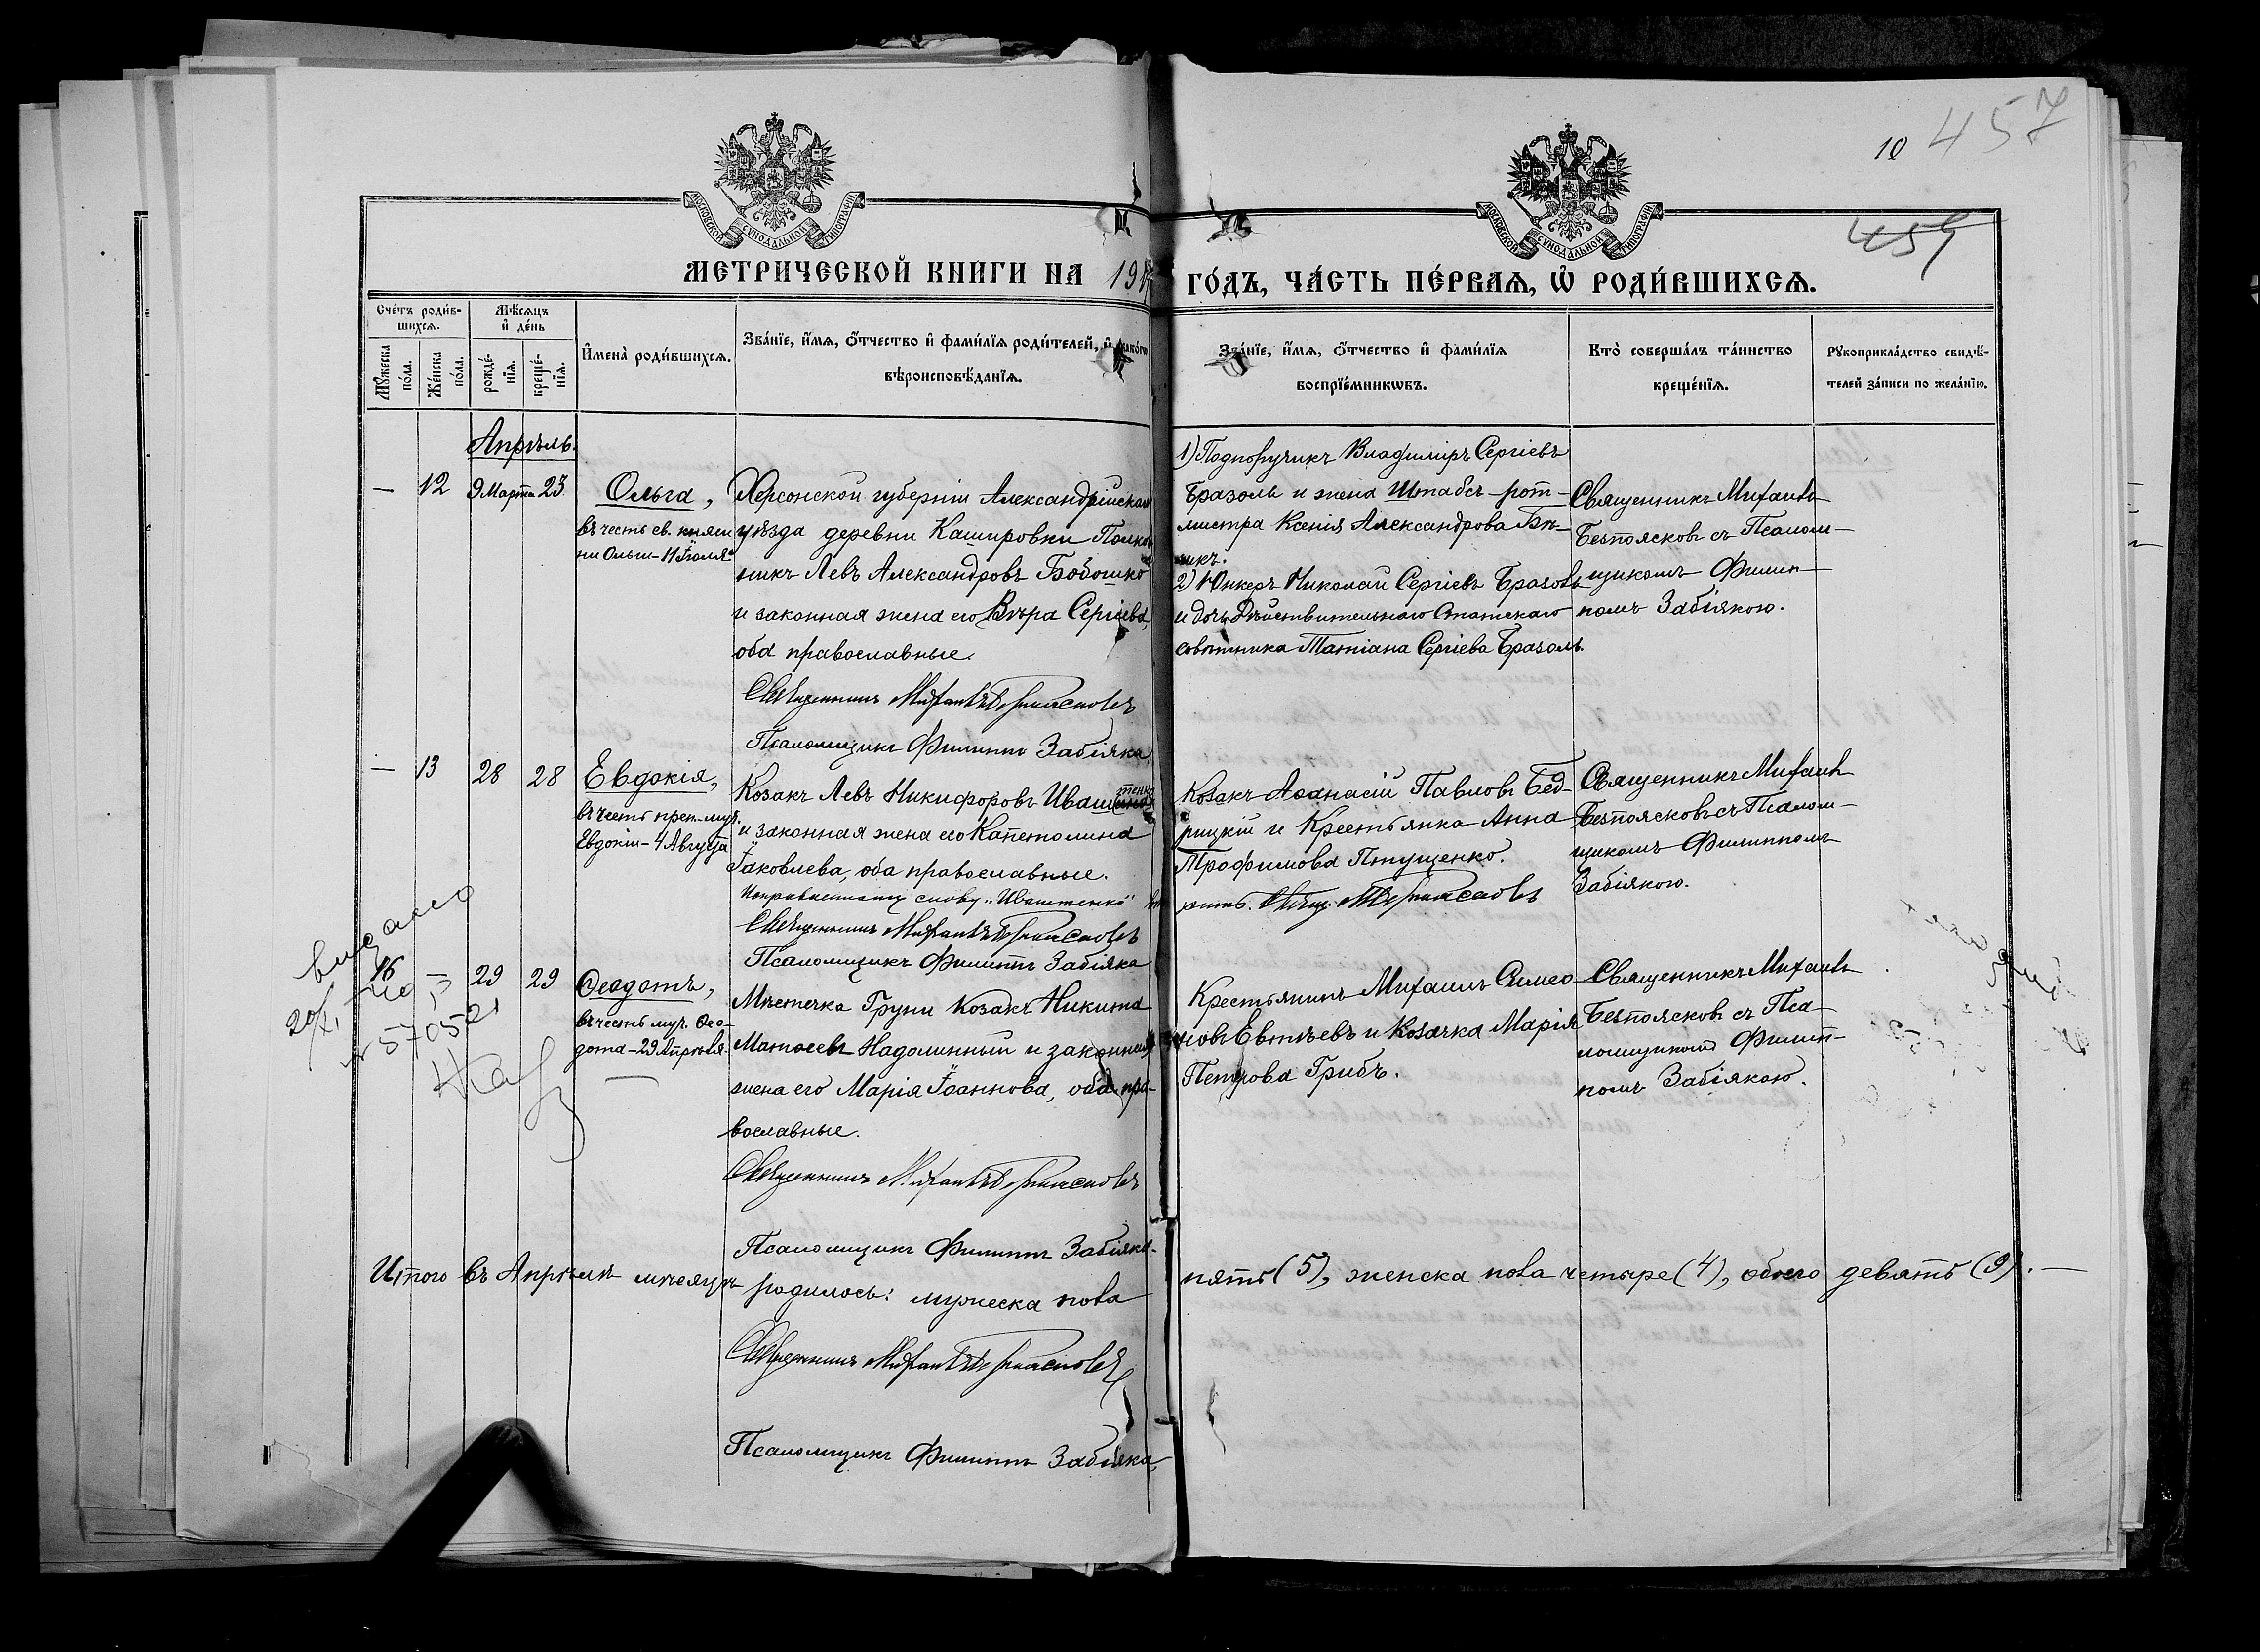 10 457
459
МОСКОВСКОЙ СѴНОДАЛЬНОЙ ТИПОГРАФІИ
МОСКОВСКОЙ СѴНОДАЛЬНОЙ ТИПОГРАФІИ
МЕТРИЧЕСКОЙ КНИГИ НА 191
ГО́ДЪ, ЧА́СТЬ ПЕ́РВАѦ, Ѡ҆ РОДИ́ВШИХСѦ.
Сче́тъ роди́в-
шихсѧ.
Мѣ́сѧцъ
и҆ де́нь
Мꙋ́жеска
по́ла.
Же́нска
по́ла.
рожде́-
нїѧ.
креще́-
нїѧ.
И҆мена̀ роди́вшихсѧ.
Зва́нїе, и҆́мѧ, ѻ҆́тчество и҆ фами́лїѧ роди́телей, и҆ како́гѡ
вѣроисповѣ́данїѧ.
Зва́нїе, и҆́мѧ, ѻ҆́тчество и҆ фами́лїѧ
воспрїе́мникѡвъ.
Кто̀ соверша́лъ та́инство
креще́нїѧ.
Рꙋкоприкла́дство свидѣ́-
телей за́писи по жела́нїю.
Апрѣль.
— 12 9 Марта 23
Ольга,
въ честь св. княги
ни Ольги – 11 Іюля
Херсонской губерніи Александрійскаго
уѣзда деревни Кашировки Полков
никъ Левъ Александровъ Бобошко
и законная жена его Вѣра Сергіева,
оба православные.
Священникъ Михаилъ Безпоясковъ
Псаломщикъ Филиппъ Забіяка.
1) Подпоручикъ Владиміръ Сергіевъ
Бразоль и жена Штабсъ-рот-
мистра Ксенія Александрова Бѣ-
никъ.
2) Юнкеръ Николай Сергіевъ Бразоль
и дочь Дѣйствительнаго Статскаго
совѣтника Татіана Сергіева Бразоль.
Священникъ Михаилъ
Безпоясковъ съ Псалом-
щикомъ Филип-
помъ Забіякою.
— 13 28 28
Евдокія,
въ честь преп.-муч.
Евдокіи – 4 Августа
Козакъ Левъ Никифоровъ Иваш
тенко
и законная жена его Капетолина
Іаковлева, оба православные.
Исправленному слову „Иваштенко" вѣ
рить. Свящ. М Безпоясковъ
Священникъ Михаилъ Безпоясковъ
Псаломщикъ Филиппъ Забіяка
Козакъ Аѳанасій Павловъ Бед-
рицкій и Крестьянка Анна
Трофимова Птущенко.
Священникъ Михаилъ
Безпоясковъ съ Псалом-
щикомъ Филиппомъ
Забіякою.
16 — 29 29
Ѳеодотъ,
въ честь муч. Ѳео-
дота – 29 Апрѣля.
Мѣстечка Груни Козакъ Никита
Матѳеевъ Надолинный и законная
жена его Марія Іоаннова, оба пра-
вославные.
Священникъ Михаилъ Безпоясковъ
Псаломщикъ Филиппъ Забіяка.
Крестьянинъ Михаилъ Симео-
новъ Евтѣевъ и Козачка Марія
Петрова Грибъ.
Священникъ Михаилъ
Безпоясковъ съ Пса-
ломщикомъ Филип-
помъ Забіякою.
выдано
20/XI
№ 570521
Итого въ Апрѣлѣ мѣсяцѣ родилось: мужеска пола пять (5), женска пола четыре (4), обоего девять (9). —
Священникъ Михаилъ Безпоясковъ
Псаломщикъ Филиппъ Забіяка.